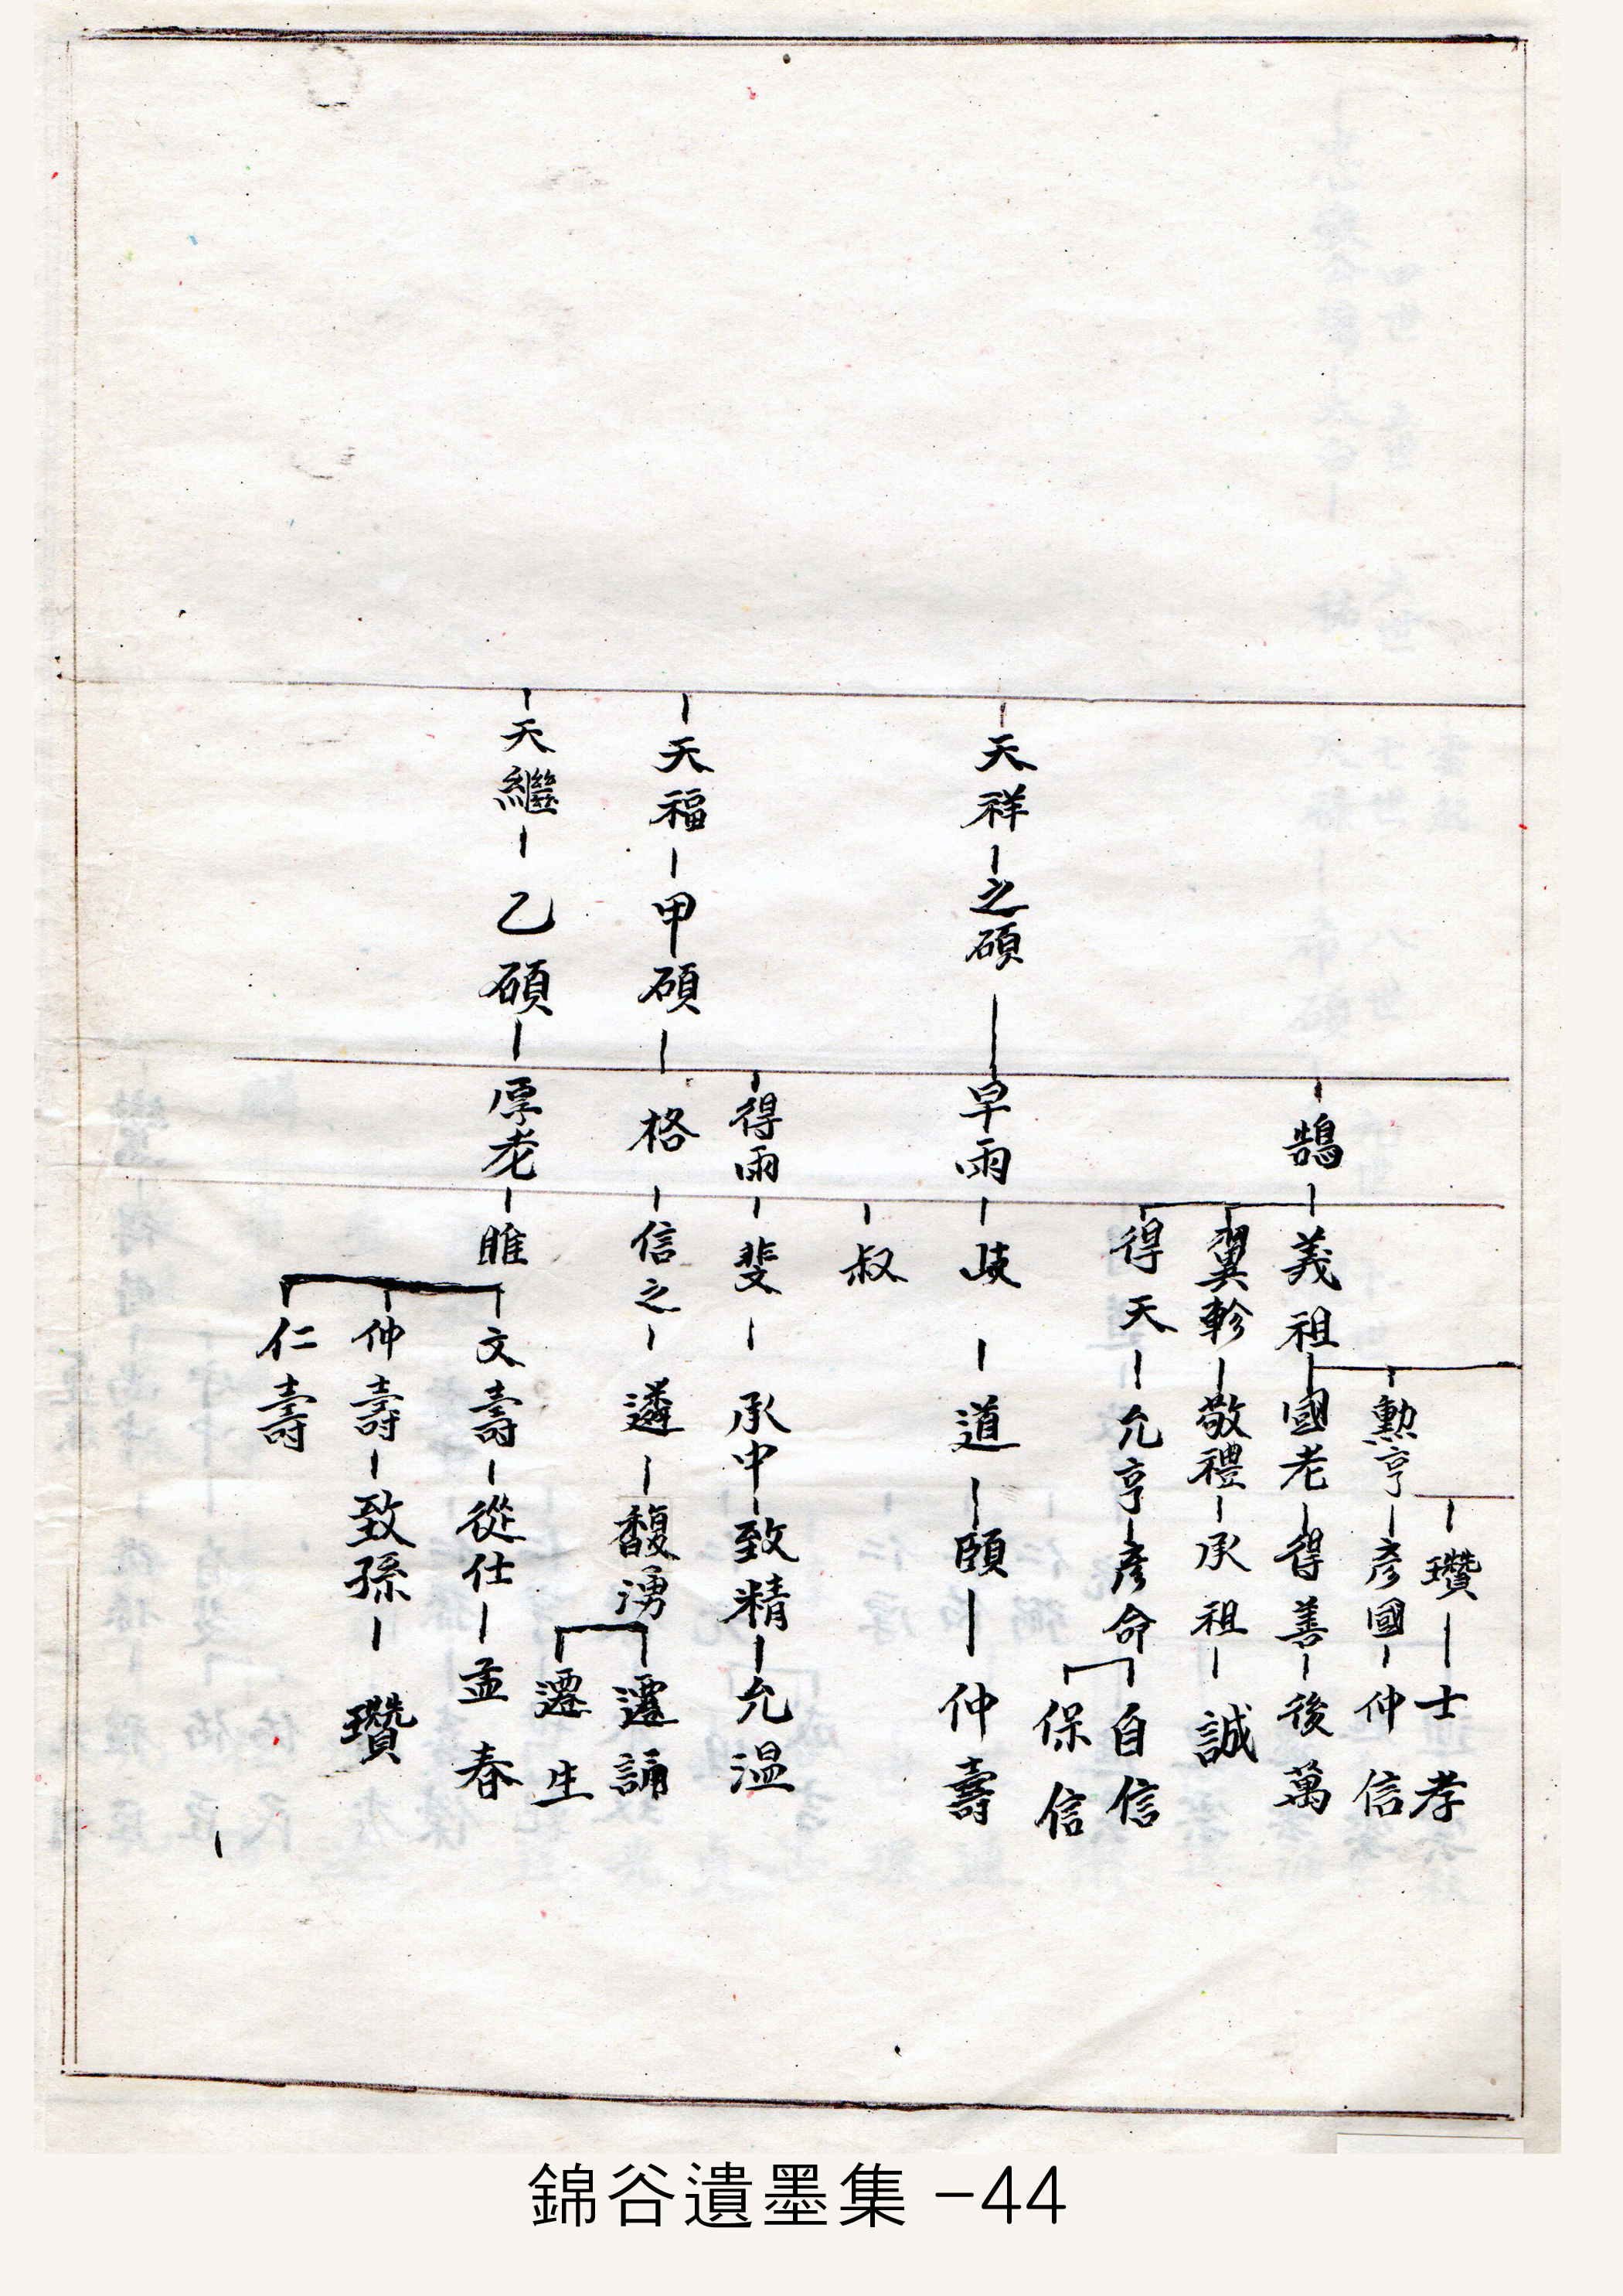 瓚 士孝
勲亨 彦國 仲信
鵠 義祖 國老 得善 後萬
翼軫 敬禮 承祖 誠
得天 允亨 彦命 自信
保信
天祥 之碩 早雨 歧 道 頤 仲壽
叔
得雨 斐 承中 致精 允温
天福 甲碩 格 信之 遴 馥湧 遷誦
遷生
天繼 乙碩 厚老 睢 文壽 從仕 孟春
仲壽 致孫 瓚
仁壽
錦谷遺墨集 -44